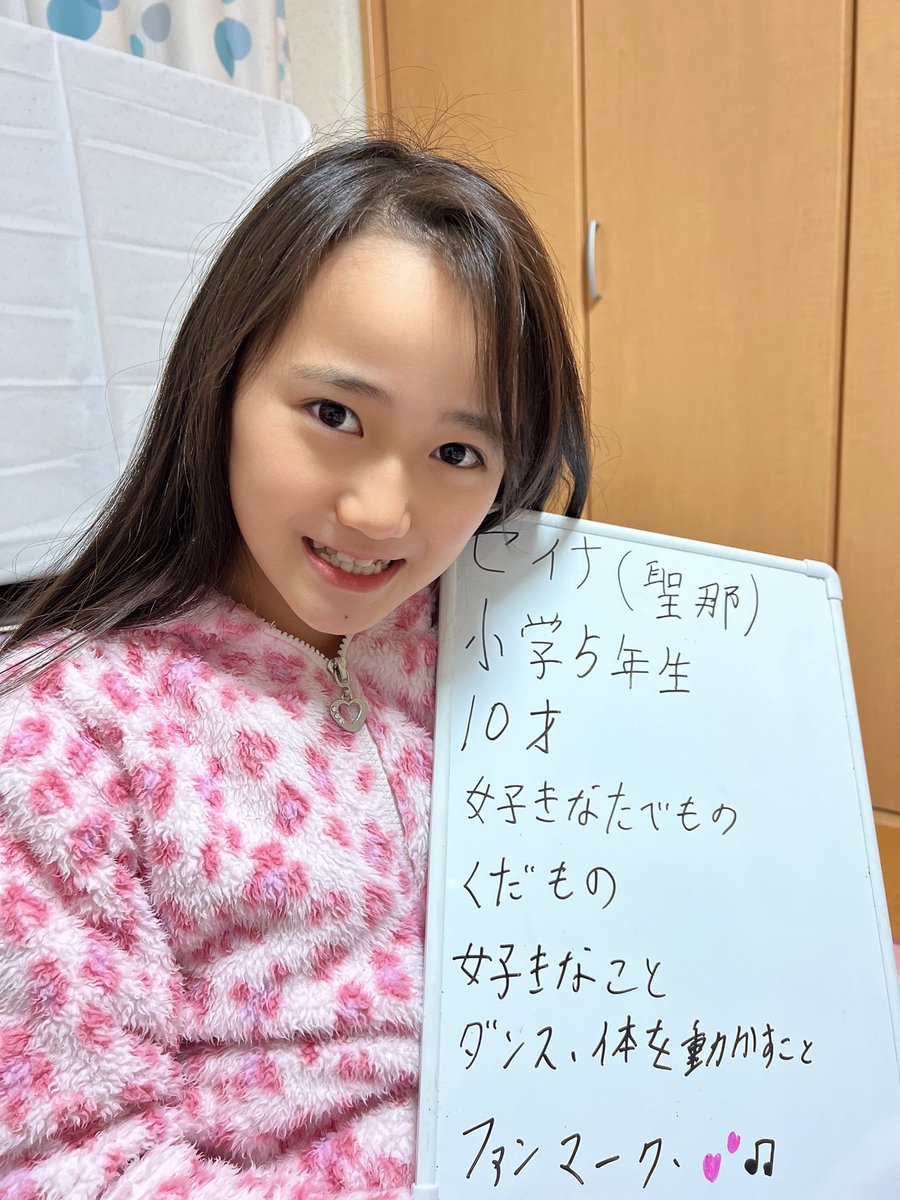 セイナ(聖那)
小学5年生
10才
好きなたべもの
くだもの
好きなこと
ダンス、体を動かすこと
ファンマーク、💕🎵